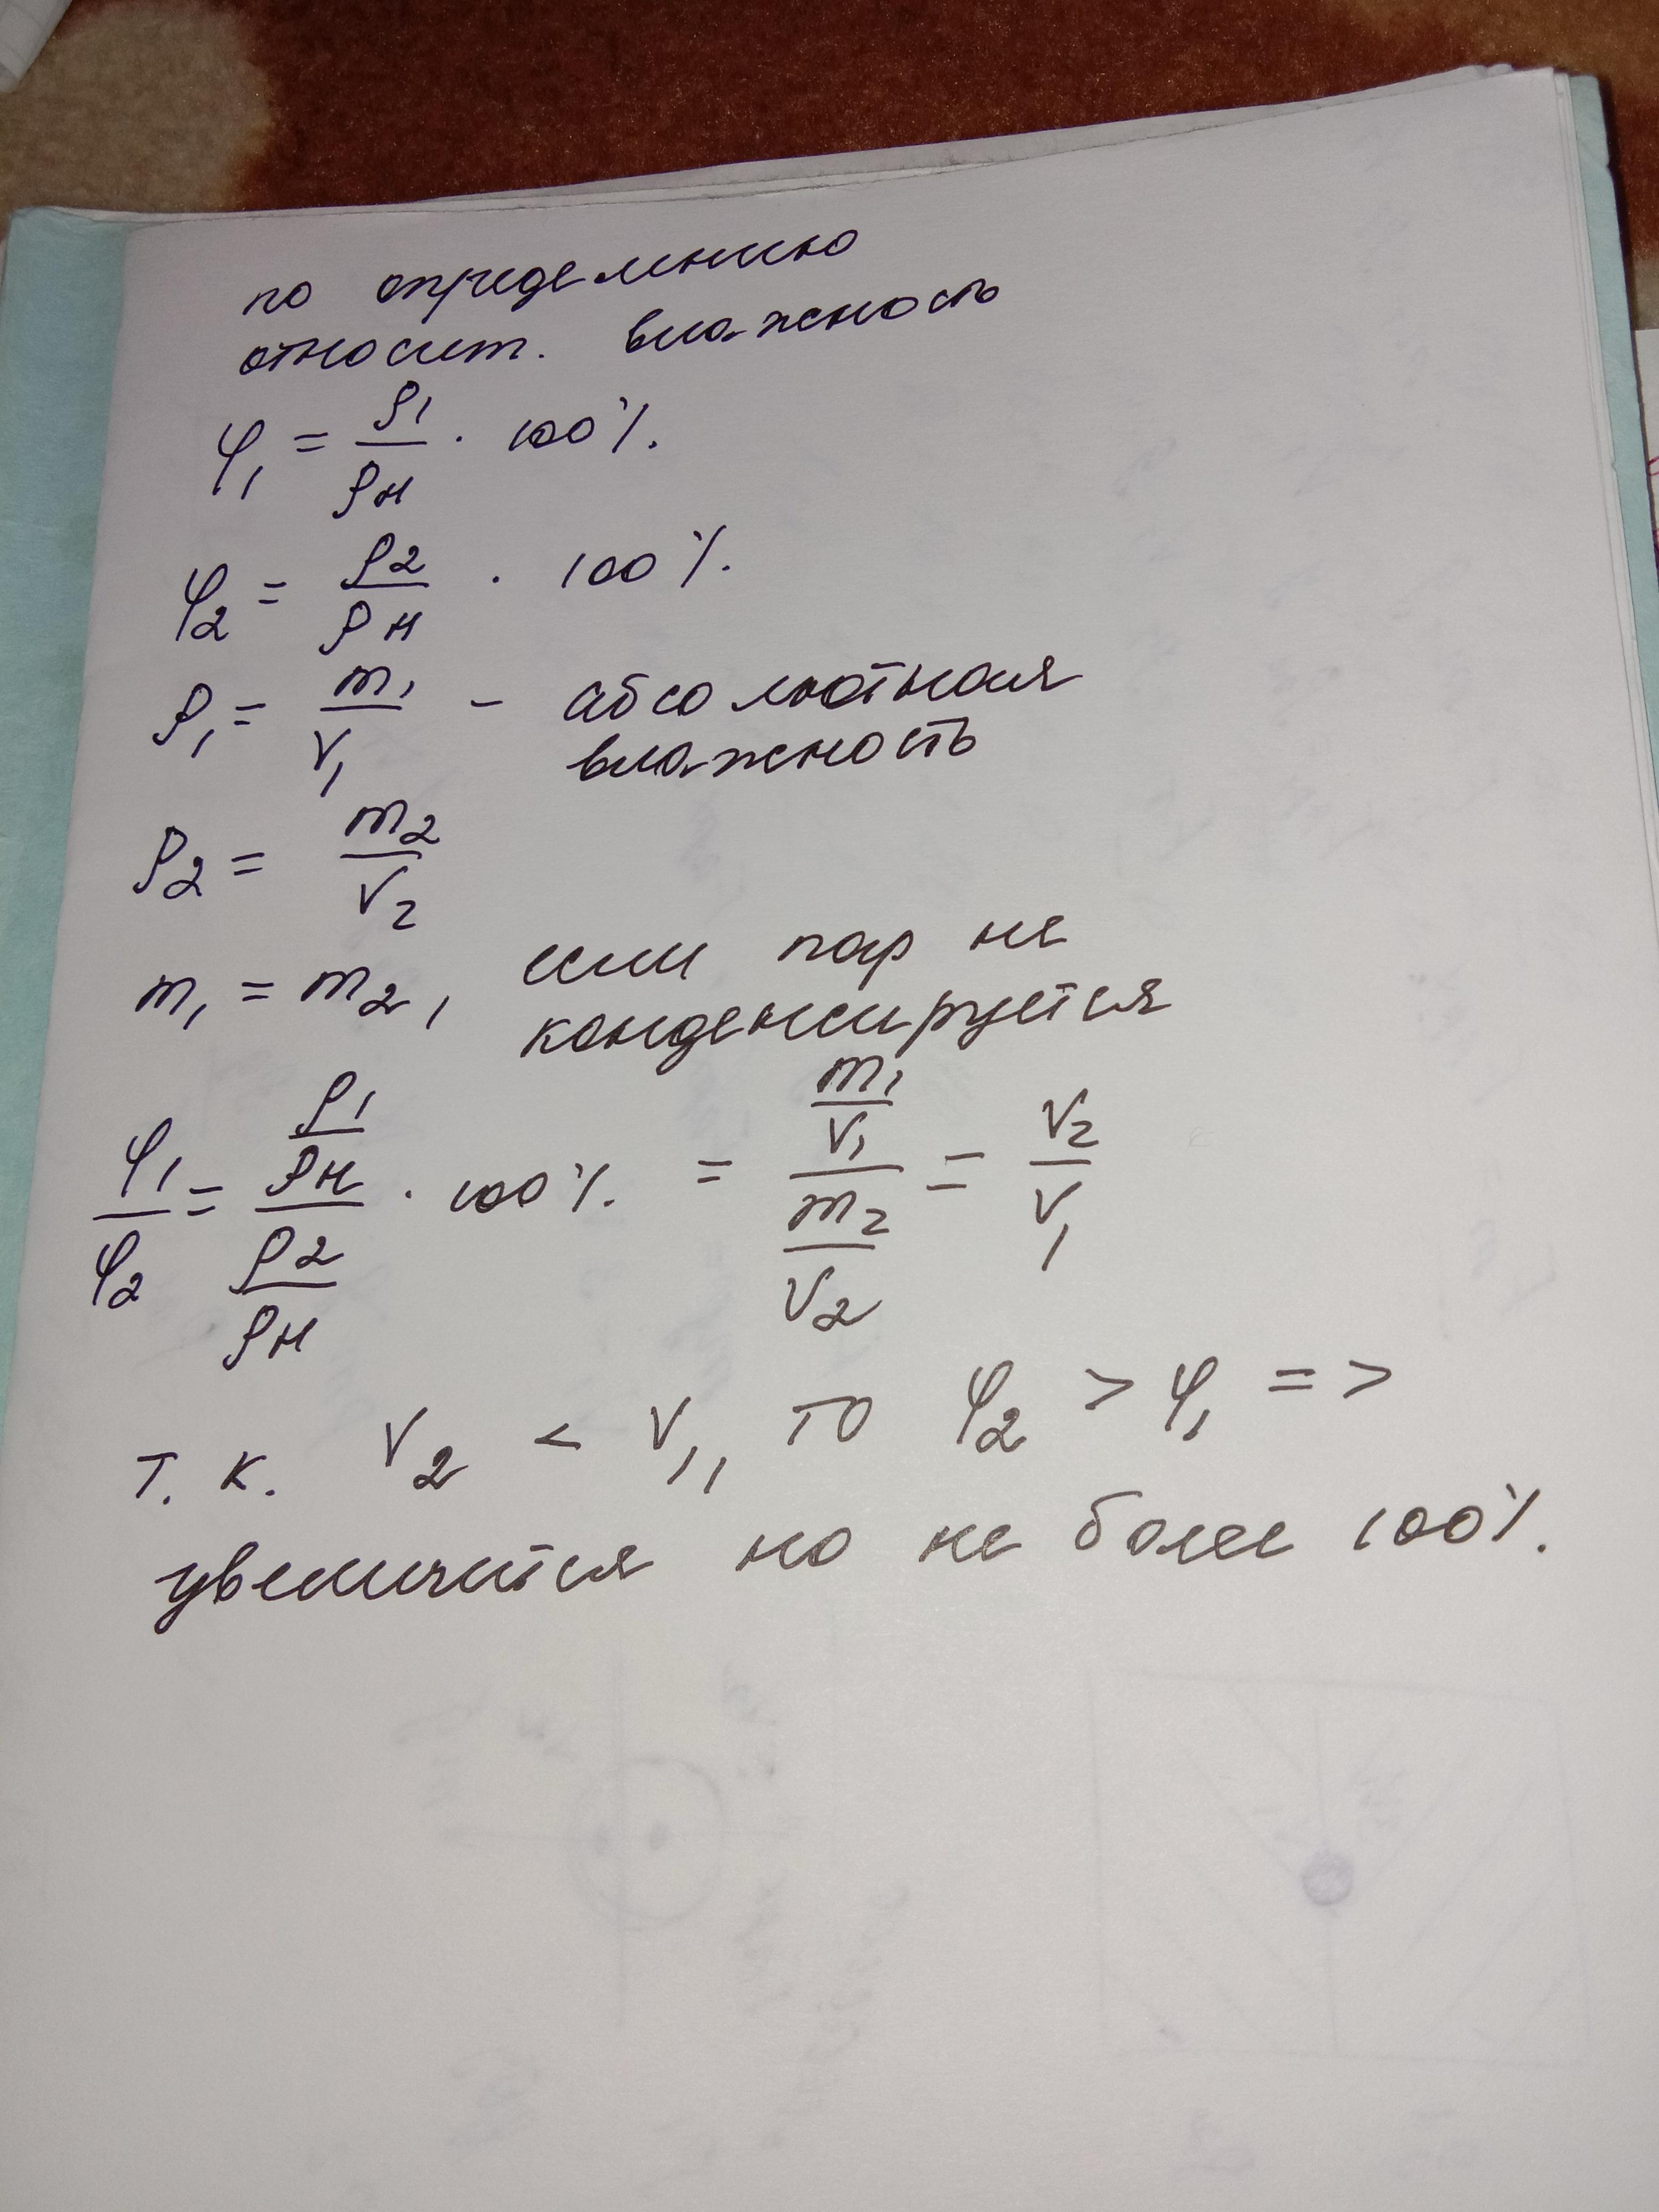 по определению
относит. влажность
φ₁ = ρ₁/ρн · 100%.
φ₂ = ρ₂/ρн · 100%.
ρ₁ = m₁/V₁ – абсолютная
влажность
ρ₂ = m₂/V₂
m₁ = m₂, если пар не
конденсируется
φ₁/φ₂ = (ρ₁/ρн)/(ρ₂/ρн) · 100%. = (m₁/V₁)/(m₂/V₂) = V₂/V₁
т. к. V₂ < V₁, то φ₂ > φ₁ =>
увеличится но не более 100%.